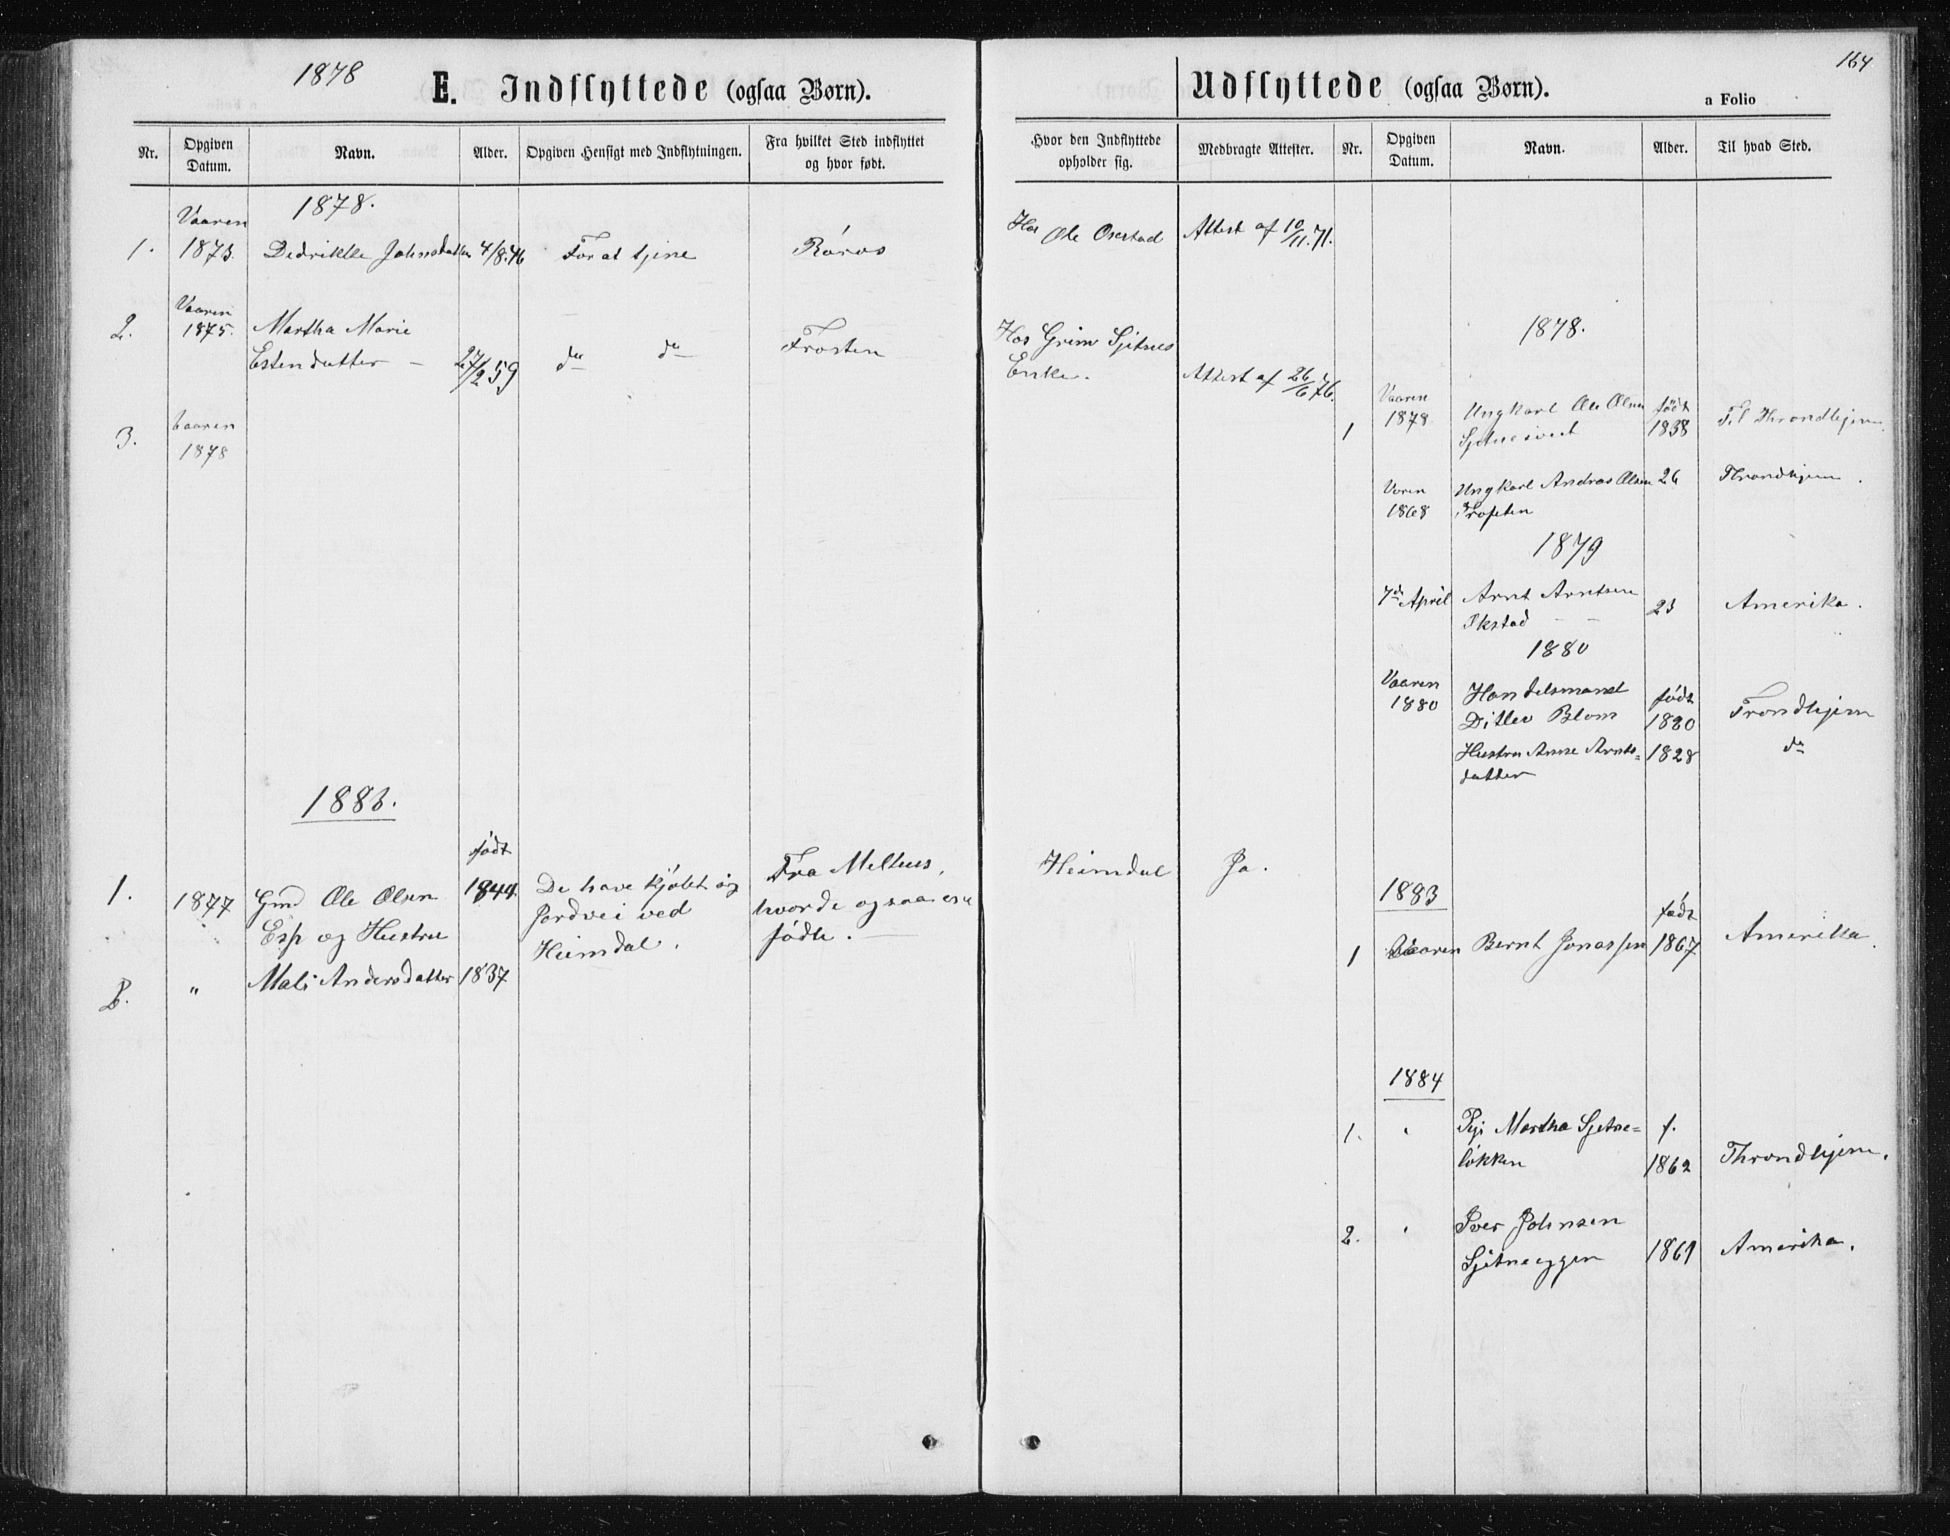 1878
E. Indflyttede (ogsaa Børn).
Nr.
Opgiven Datum.
Navn.
Alder.
Opgiven Hensigt med Indflytningen.
Fra hvilket Sted indflyttet og hvor født.
1878.
1. Vaaren 1873. Dedrikke Johnsdatter 4/8.46 For at tjene Røros
2. Vaaren 1875. Martha Marie
Estendatter – 27/2 59 do do Frosten
3. Vaaren
1878
1883.
født
1. 1877 Gmd Ole Olsen 1844 De have kjøbt sig Fra Melhus,
Esp og Hustru Jordvei ved hvor de ogsaa ere
Heimdal. fødte. —
2. " Mali Andersdatter 1837
164
Udflyttede (ogsaa Børn).
a Folio
Hvor den Indflyttede opholder sig.
Medbragte Attester.
Nr.
Opgiven Datum.
Navn.
Alder.
Til hvad Sted.
Hos Ole Orestad Attest af 10/11.71.
Hos Grim Sjetnes
Enke. Attest af 26/6 76.
1878.
1 Vaaren 1878 Ungkarl Ole Olsen født 1838 Til Throndhjem
Voren 1868 Ungkarl Andras Olsen 26 Throndhjem.
1879
7de April Arnt Arntsen
Ekstad — — 23 Amerika.
1880
Vaaren 1880 Handelsmand født
Ditlev Blom 1820 Trondhjem
Hustru Anne Arnts= 1828 do
datter
Heimdal Ja.
1883
født
1 Vaaren Bernt Jonassen 1867 Amerika.
1884
1. " Pige Martha Sjetne= f.
løkken 1862 Throndhjem.
2. " Iver Johnsen
Sjetneeggen 1861 Amerika.